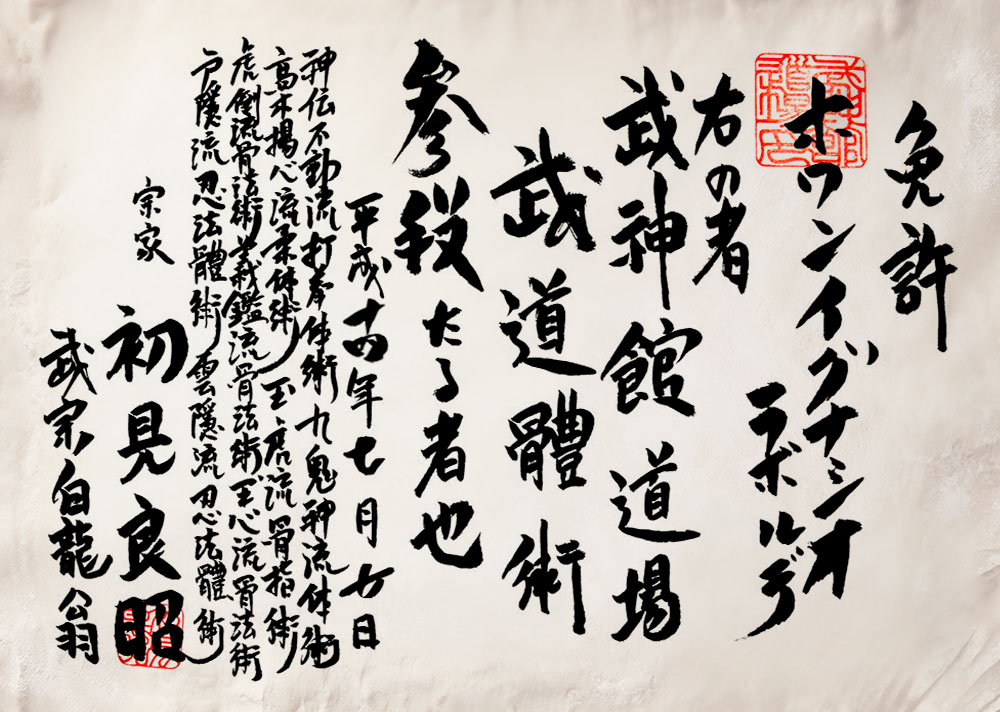 免許
ホワンイグナシオ
ラボルデ
右の者
武神館道場
武道體術
参段たる者也
平成十四年七月七日
神伝不動流打拳体術九鬼神流体術
高木揚心流柔体術玉虎流骨指術
虎倒流骨法術義鑑流骨法術玉心流骨法術
戸隠流忍法體術雲隠流忍法體術
宗家
初見良昭
武宗白龍翁